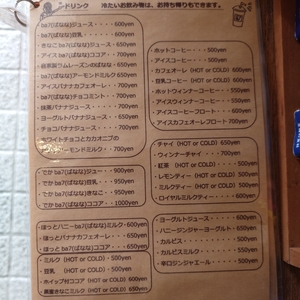 ドリンク 冷たいお飲み物は、お持ち帰りもできます。
ba7(ばなな)ジュース・・・・600yen
ba7(ばなな)豆乳・・・・650yen
きなこ ba7(ばなな)ジュース・・650yen
アイスba7(ばなな)ココア・・・700yen
ba7(ばなな)アーモンドミルク・・700yen
アイスバナナカフェオーレ・・・700yen
ba7(ばなな)チョコミント・・・700yen
抹茶バナナジュース・・・・700yen
ヨーグルトバナナジュース・・・650yen
チョコバナナジュース・・・・700yen
ホワイトチョコとカカオニブの
でか ba7(ばなな)ジュース・・・900yen
でか ba7(ばなな)豆乳・・・950yen
でか ba7(ばなな)きなこ・・・950yen
でか ba7(ばなな)ココア・・・1000yen
ほっとハニーba7(ばなな)ミルク・・600yen
ほっとバナナカフェオーレ・・650yen
ほっと ba7(ばなな)ココア・・・650yen
ミルク (HOT or COLD)・・・500yen
豆乳 (HOT or COLD)・・・500yen
ココア (HOT or COLD)・・・600yen
ホイップ付ココア (HOT or COLD) 650yen
黒蜜きなこミルク (HOT or COLD) 650yen
ホットコーヒー・・・・500yen
アイスコーヒー・・・・500yen
カフェオーレ (HOT or COLD) 600yen
豆乳コーヒー (HOT or COLD) 600yen
ホットウィンナーコーヒー・・・600yen
アイスウィンナーコーヒー・・・600yen
コーヒーフロート・・・600yen
アイスカフェオーレフロート・・700yen
チャイ (HOT or COLD)・・・600yen
ウィンナーチャイ・・・・700yen
紅茶 (HOT or COLD)・・・500yen
レモンティー (HOT or COLD)・・500yen
ミルクティー (HOT or COLD)・・500yen
ロイヤルミルクティー・・・600yen
ヨーグルトジュース・・・・600yen
ハニージンジャーヨーグルト・・650yen
カルピス・・・・500yen
カルピスミルク・・・・550yen
辛口ジンジャエール・・・500yen